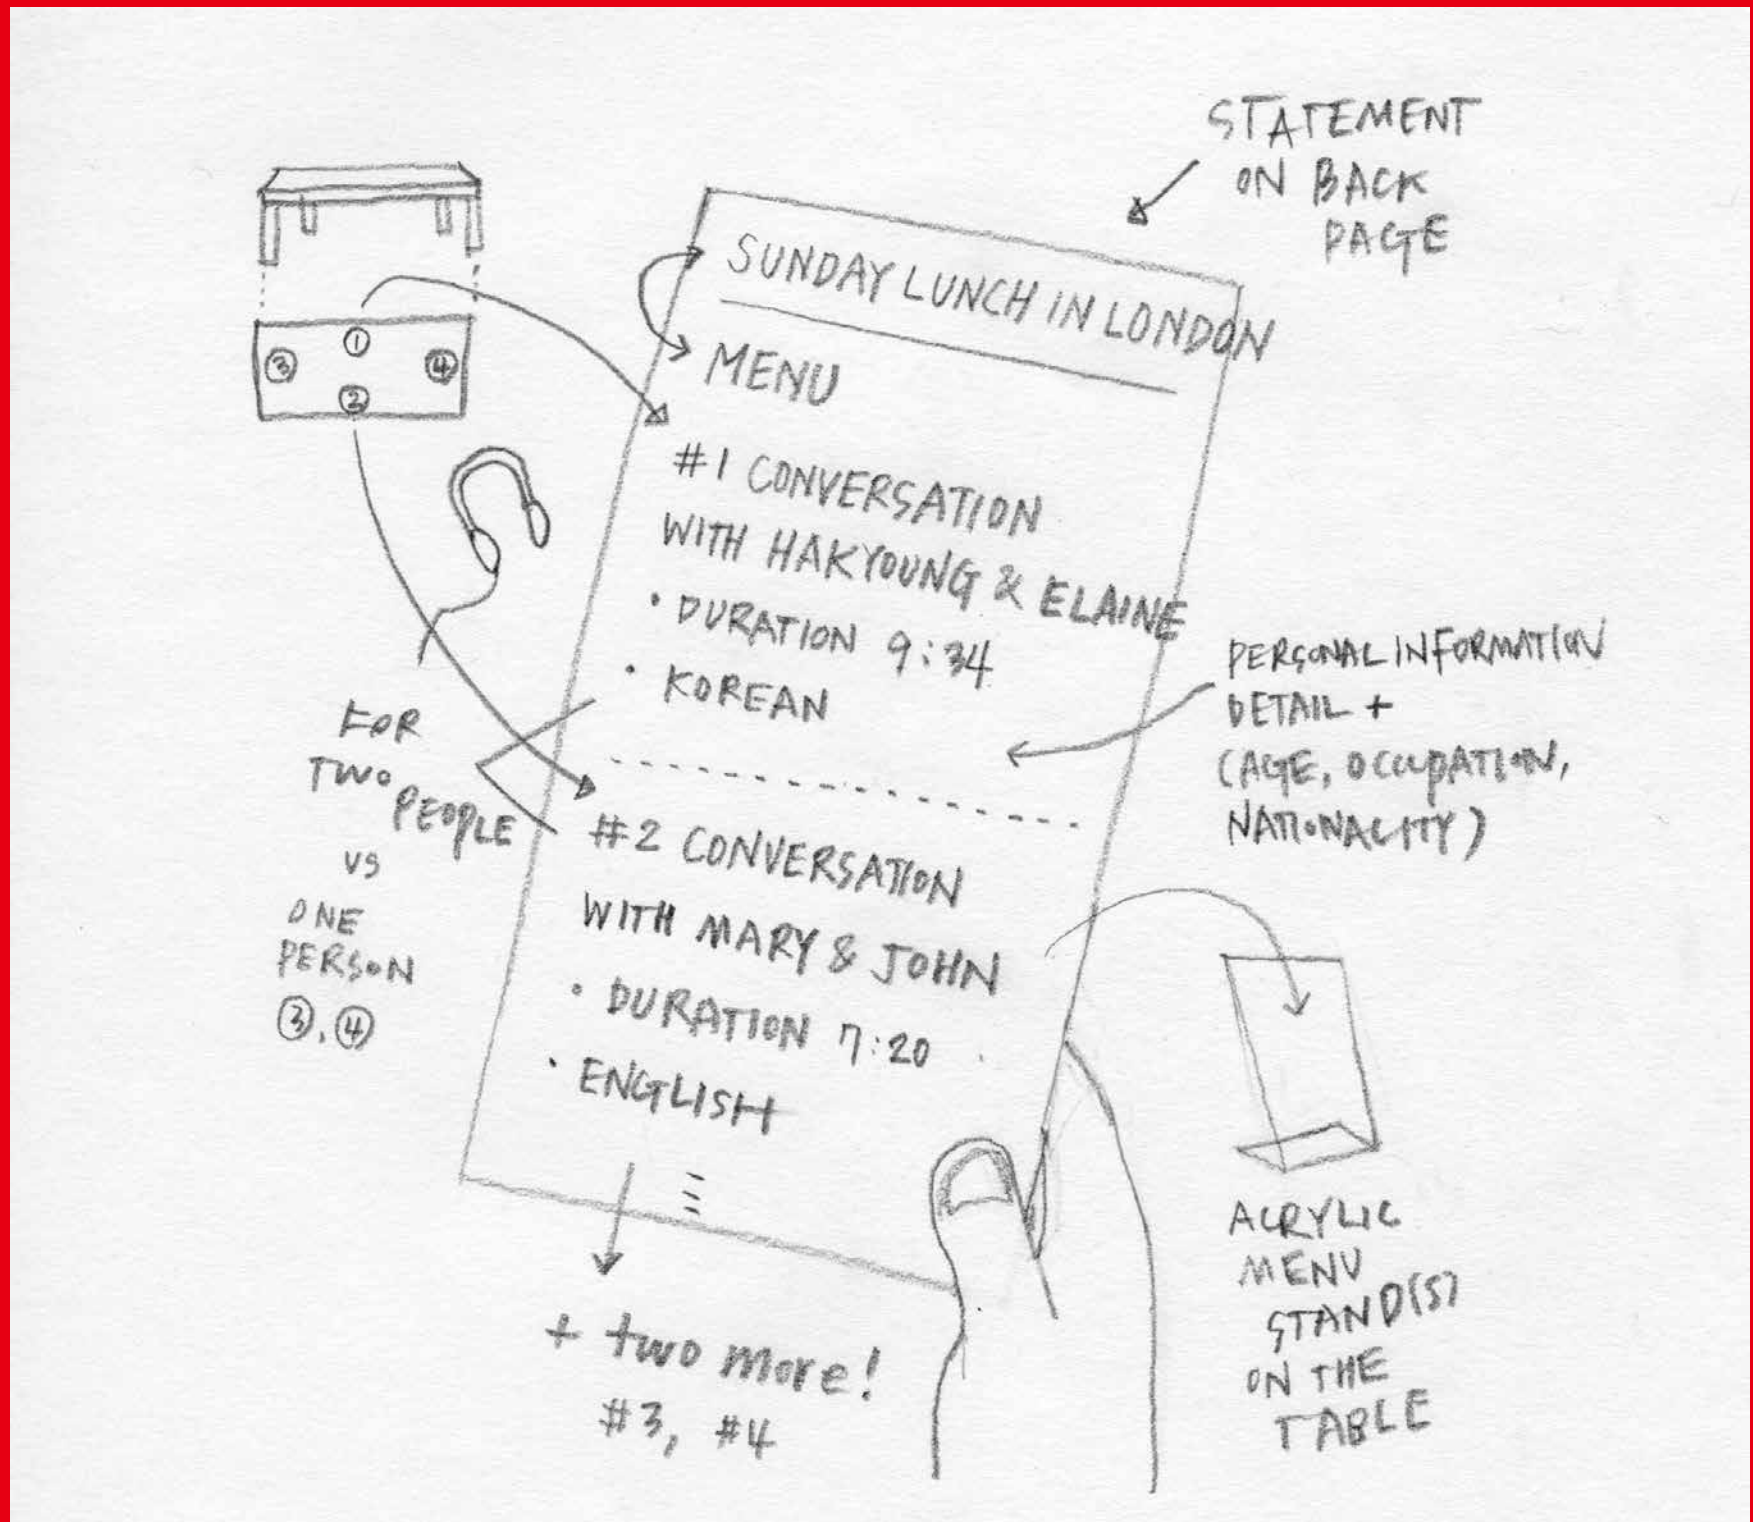 STATEMENT
ON BACK
PAGE
SUNDAY LUNCH IN LONDON
MENU
#1 CONVERSATION
WITH HAKYOUNG & ELAINE
• DURATION 9:34
• KOREAN
#2 CONVERSATION
WITH MARY & JOHN
• DURATION 7:20
• ENGLISH
+ two more!
#3, #4
①
③
④
②
FOR
TWO
PEOPLE
VS
ONE
PERSON
③, ④
PERSONAL INFORMATION
DETAIL +
(AGE, OCCUPATION,
NATIONALITY)
ACRYLIC
MENU
STAND(S)
ON THE
TABLE